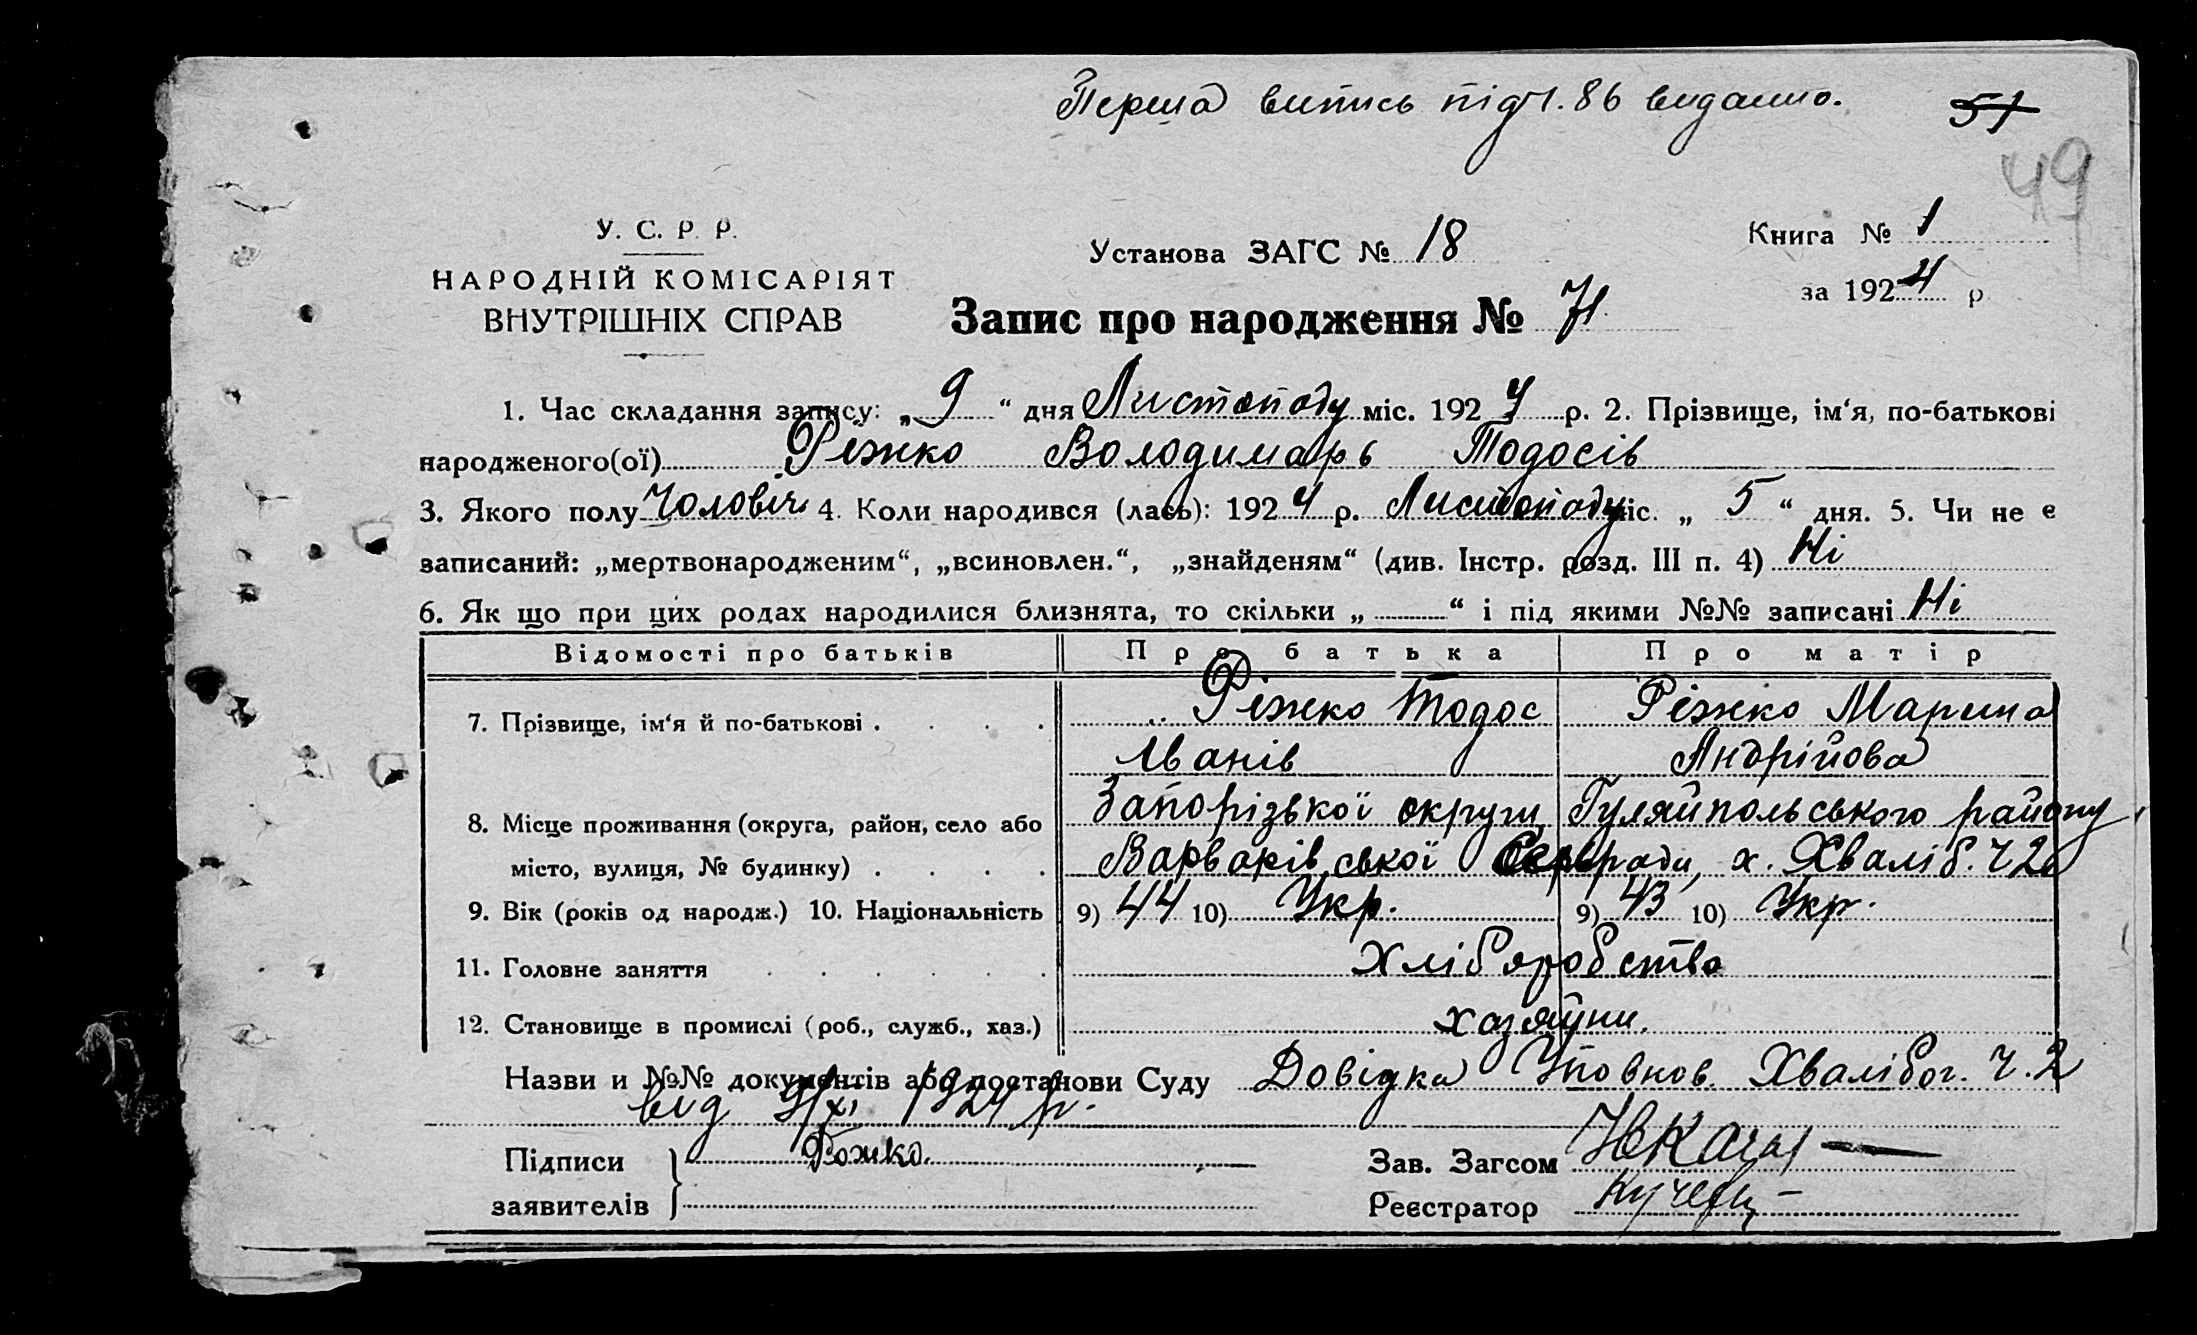 Перша випись під ч. 86 видано.
51
49
У. С. Р. Р.
НАРОДНІЙ КОМІСАРІЯТ
ВНУТРІШНІХ СПРАВ
Установа ЗАГС № 18
Книга № 1
за 1924 р
Запис про народження № 71
1. Час складання запису: „ 9 “ дня Листопаду міс. 1924 р. 2. Прізвище, ім‘я, по-батькові
народженого(ої) Ріжко Володимарь Тодосів
3. Якого полу Чоловіч 4. Коли народився (лась): 1924 р. Листопаду міс. „ 5 “ дня. 5. Чи не є
записаний: „мертвонародженим“, „всиновлен.“, „знайденям“ (див. Інстр. розд. III п. 4) Ні
6. Як що при цих родах народилися близнята, то скільки „ “ і під якими №№ записані Ні
Відомості про батьків Про батька Про матір
7. Прізвище, ім‘я й по-батькові . . . . Ріжко Тодос Ріжко Марина
Іванів Андрійова
8. Місце проживання (округа, район, село або Запорізької округи, Гуляйпольського району,
місто, вулиця, № будинку) . . . . Варварівської Сельради, х. Хваліб. ч 2
9. Вік (років од народж.) 10. Національність 9) 44 10) Укр. 9) 43 10) Укр.
11. Головне заняття . . . . . . Хліборобство
12. Становище в промислі (роб., служб., хаз.) хазяйуни.
Назви и №№ документів або постанови Суду Довідка Уповнов. Хвалібог. ч. 2
від 9/XI 1924 р.
Підписи Рожко.
заявителів
Зав. Загсом
Реєстратор